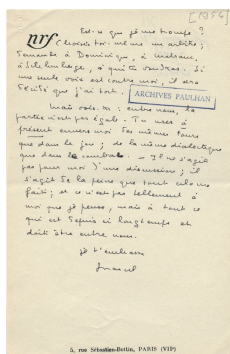 [1954]
nrf
Est-ce que je me trompe ?
Choisis toi-même un arbitre ;
demande à Dominique, à
à qui tu voudras. Si
une seule voix est contre moi, il sera
décidé que j'ai tort.
ARCHIVES PAULHAN
Mais vois-tu : entre nous, la
partie n'est pas égale. Tu uses à
présent envers moi des mêmes
que dans le jeu ; de la même dialectique
que dans le combat. Il ne s'agit
pas pour moi d'une discussion ; il
s'agit de la peine que tout cela me
fait ; et ce n'est pas tellement à
moi que je pense, mais à tout ce
qui est depuis si longtemps et
doit être entre nous.
Je t'embrasse
Marcel
5, rue Sébastien-Bottin, PARIS (VIIe)